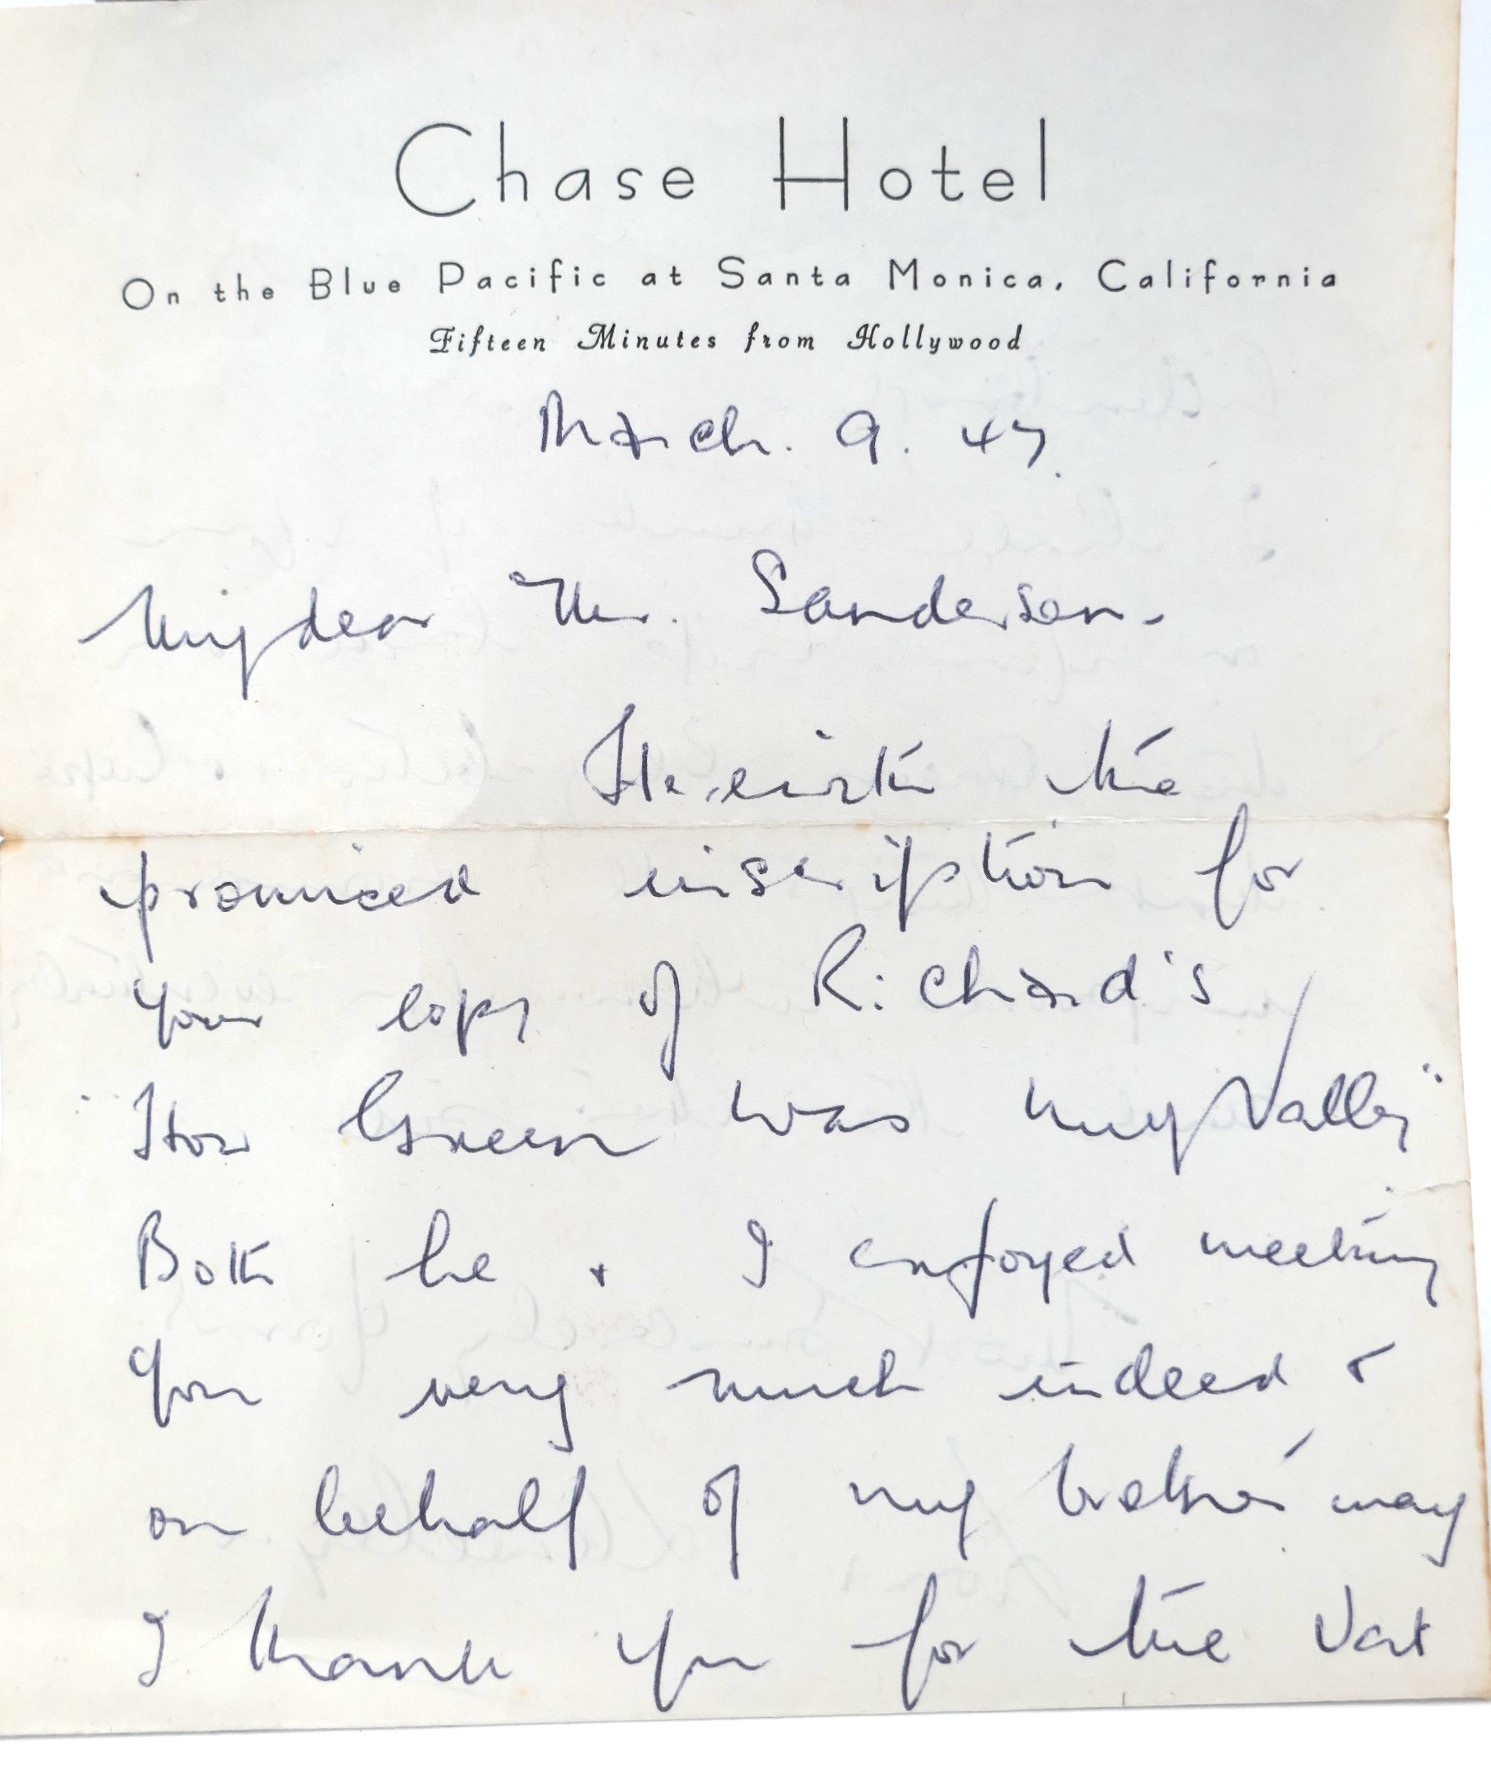 Chase Hotel
On the Blue Pacific at Santa Monica, California
Fifteen Minutes from Hollywood
March. 9. 47.
My dear Mr. Sanderson.
Herewith the
promised inscription for
your copy of Richard's
"How Green was my Valley"
Both he & I enjoyed meeting
you very much indeed &
on behalf of my brother may
I thank you for the Vat